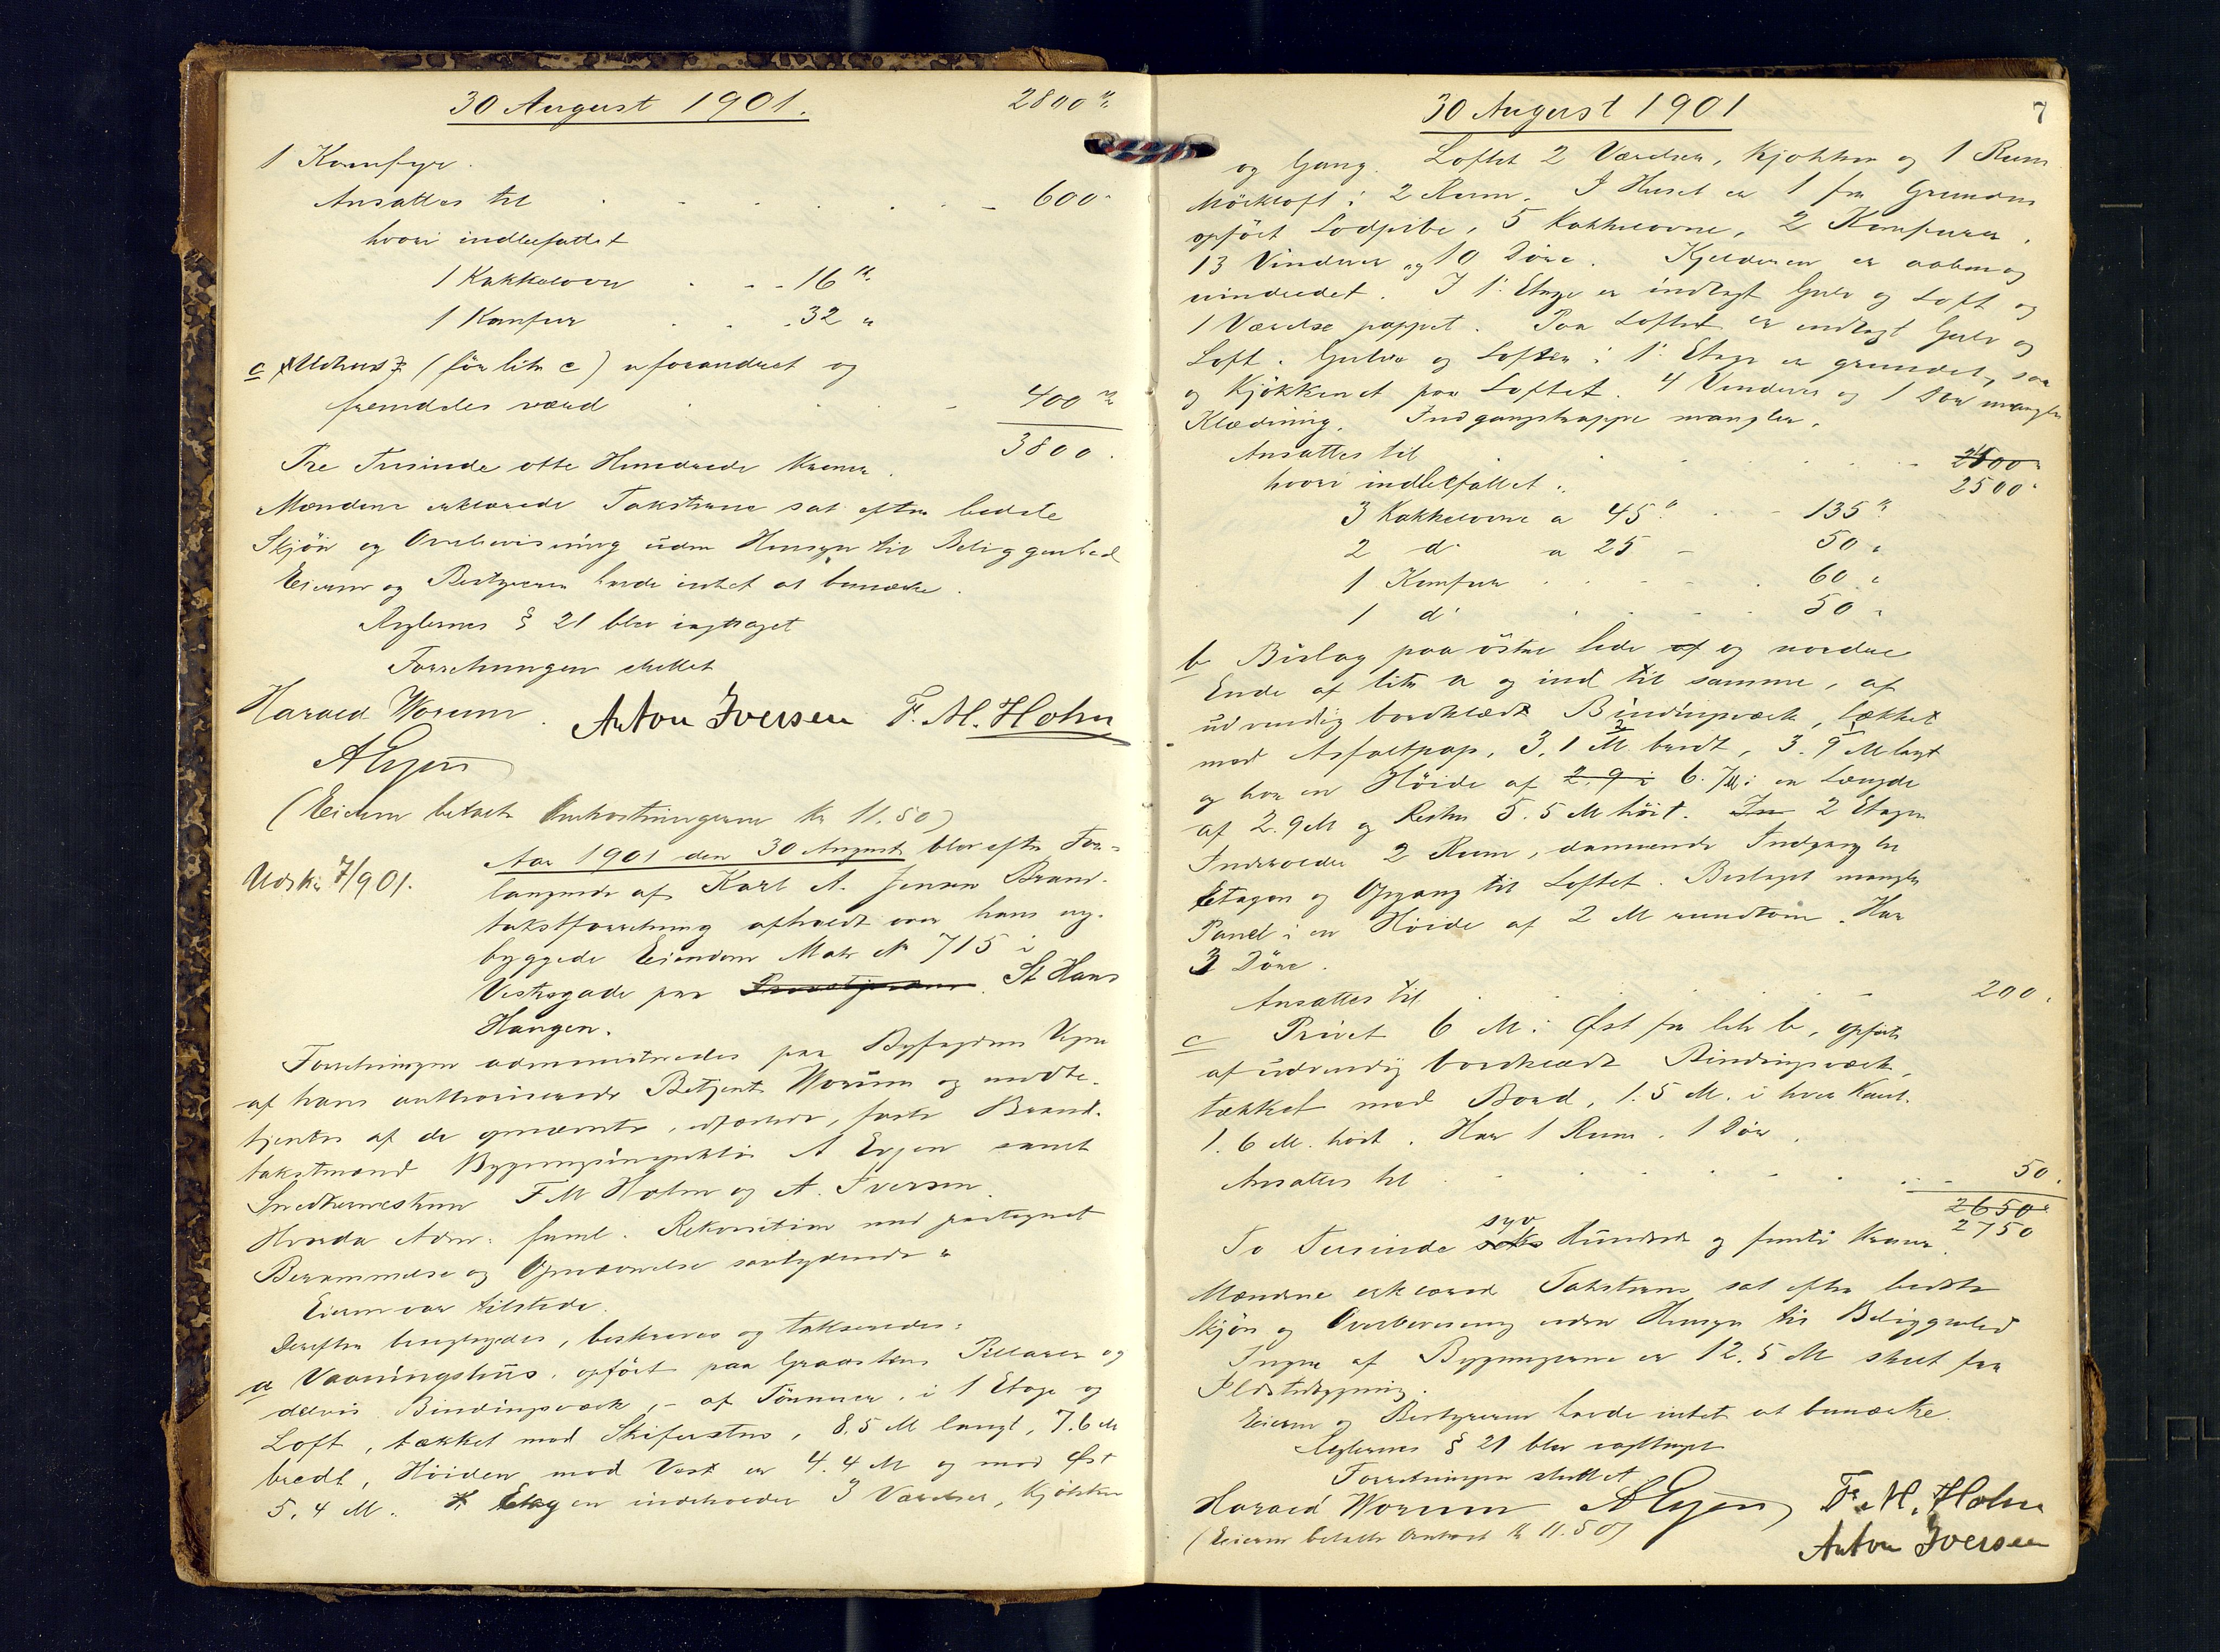 30 August 1901.
2800 Kr
1 Komfyr.
Ansattes til - 600 "
hvori indbefattet
1 Kakkelovn - - 16 Kr
1 Komfur . . 32 "
c Udhus (før litr c) uforandret og
fremdeles værd - 400 Kr
3800.
Tre Tusinde otte Hundrede Kroner.
Mændene erklærede Taksterne sat efter bedste
Skjøn og Overbevisning uden Hensyn til Beliggenhed
Eieren og Bestyreren havde intet at bemærke.
Reglernes § 21 blev iagttaget
Forretningen sluttet
Harald Worum. Anton Iversen F. M. Holm
A Evjen
(Eieren betalte Omkostningerne Kr 11.50)
Udsk. 7/901.
Aar 1901 den 30 August blev efter For-
langende af Karl A. Jensen Brand-
takstforretning afholdt over hans ny-
byggede Eiendom Matr No 715 i
Vestregade paa St Hans
Haugen.
Forretningen administreredes paa Byfogdens Vegne
af hans authoriserede Betjent Worum og medbe-
tjentes af de opnævnte, edfæstede, faste Brand-
takstmænd Bygningsinspektør A Evjen samt
Snedkermestrene F M Holm og A. Iversen.
Hvorda Adm: freml. Rekvisition med paategnet
Berammelse og Opnævnelse saalydende "
Eieren var tilstede.
Derefter besigtigedes, beskreves og taksteredes:
a Vaaningshus, opført paa Graastens Pillarer og
delvis Bindingsværk, - af Tømmer, i 1 Etage og
Loft, tækket med Skifersten, 8.5 M langt, 7.6 M
bredt, Høiden mod Vest er 4.4 M og mod Øst
5.4 M. 1 Etagen indeholder 3 Værelser, Kjøkken
30 August 1901
7
og Gang. Loftet 2 Værelser, Kjøkken og 1 Rum
Mørkloft i 2 Rum. I Huset er 1 fra Grunden
opført Lodpibe, 5 Kakkelovne, 2 Komfurer,
13 Vinduer og 10 Døre. Kjelderen er aaben og
uindredet. I 1' Etage er indlagt Gulv og Loft og
1 Værelse pappet. Paa Loftet er indlagt Gulv og
Loft. Gulve og Lofter i 1' Etage er grundet, saa
og Kjøkkenet paa Loftet. 4 Vinduer og 1 Dør mangler
Klædning. Indgangstrappe mangler.
Ansattes til - 2400 "
hvori indbefattet: 2500 "
3 Kakkelovne a 45 " - 135 "
2 do a 25 - 50 "
1 Komfur . . . 60 "
1 do . . . 50 "
b Bislag paa østre Side af og nordre
Ende af litr a og ind til samme, af
udvendig bordklædt Bindingsværk, tækket
med Asfaltpap, 3.1 M bredt, 3.9 M langt
og har en Høide af 2.9 i 6.7 M i en Længde
af 2.9 M og Resten 5.5 M høit. 2 Etager
Indeholder 2 Rum, dannende Indgang til
Etagen og Opgang til Loftet. Bislaget mangler
Panel i en Høide af 2 M rundtom. Har
3 Døre.
Ansattes til - 200.
c Privet 6 M. i Øst fra litr b, opført
af udvendig bordklædt Bindingsværk,
tækket med Bord, 1.5 M. i hver Kant.
1.6 M. høit. Har 1 Rum. 1 Dør.
Ansattes til - 50.
2650 "
To Tusinde seks syv Hundrede og femti Kroner. 2750
Mændene erklæred Taksterne sat efter bedste
Skjøn og Overbevisning uden Hensyn til Beliggenhed
Ingen af Bygningerne er 12.5 M skilt fra
Ildstedbygning.
Eieren og Bestyreren havde intet at bemærke.
Reglernes § 21 blev iagttaget
Forretningen sluttet
Harald Worum A Evjen Fr. M. Holm
(Eieren betalte Omkost Kr 11.50)
Anton Iversen